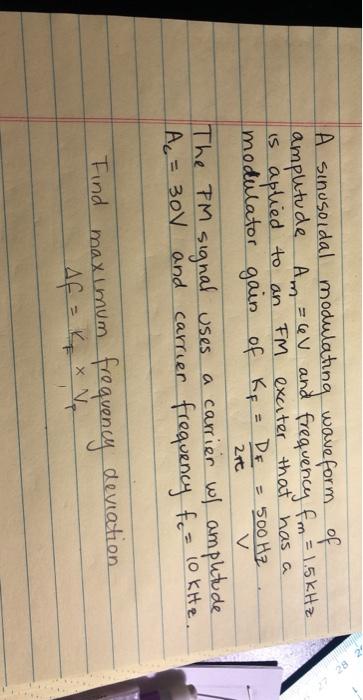 A sinusoidal modulating waveform of
amplitude Am = 6V and frequency fm = 1.5KHz
is aplied to an FM exciter that has a
modulator gain of KF = DF/2π = 500Hz/V.
The FM signal uses a carrier w/ amplitude
Ac = 30V and carrier frequency fc = 10 KHz.
Find maximum frequency deviation
Δf = KF × Vp
27 28